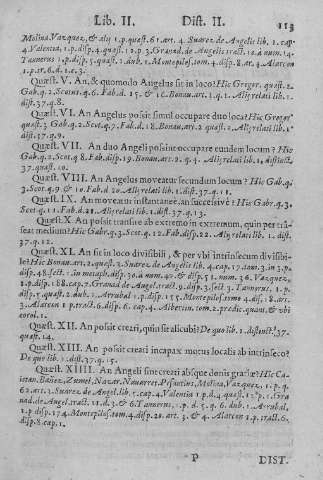 Lib. II. Dist. II. 113
Molina, Vazquez, & alij 1. p. quæst. 61. art. 4. Suarez de Angelis lib. 1. cap.
4. Valentia, 1. p. disp. 4. quæst. 12. p. 3. Granad. de Angelis tract. 10. a num. 14.
Tannerus 1. p. disp. 5. quæst. dub. 1. Montepilos. tom. 4. disp. 8. ar. 4. Alarcon
1. p. tr. 6. d. 1. c. 3.
Quæst. V. An, & quomodo Angelus sit in loco? Hic Gregor. quæst. 2.
Gab. q. 2. Scotus q. 6. Fab. d. 15. & 16. Bonau. art. 1. q. 1. Alij relati lib. 1.
dist. 37. q. 8.
Quæst. VI. An Angelus possit simul occupare duo loca? Hic Gregor.
quæst. 3 Gab. q. 2. Scot. q. 7. Fab. d. 18. Bonau. ar. 2. quæst. 2. Alij relati lib. 1
dist. 37. q. 9.
Quæst. VII. An duo Angeli possint occupare eundem locum? Hic
Gab. q. 2. Scot. q. 8. Fab. disp. 19. Bonau. art. 2. q. 4. Alij relati lib. 1. distinct.
37. quæst. 10.
Quæst. VIII. An Angelus moveatur secundum locum? Hic Gab. q.
3. Scot. q. 9 & 10. Fab. d. 20. Alij relati lib. 1. dist. 37. q. 11.
Quæst. IX. An moveatur instantaneè, an successivè? Hic Gab. q. 3.
Scot. q. 11. Fab. d. 21. Alij relati lib. 1. dist. 37. q. 13.
Quæst. X. An possit transire ab extremo in extremum, quin per trã-
seat medium? Hic Gabr. q. 3. Scot. q. 12. Fab. disp. 22. Alij relati lib. 1. dist.
37. q. 12.
Quæst. XI. An sit in loco divisibili, & per vbi intrinsecum divisibi-
le? Hic Bonau. ar. 2. quæst. 3. Suarez de Angelis lib. 4. cap. 17. & tom. 3 in 3. p.
disp. 48. sect. in metaph. disp. 30. a num. 40. & disp. 51. num. 36. Vazquez,
1. p. disp. 188. cap. 7. Granad. de Angel. tract. 9. disp. 3. sect. 3. Tannerus 1. p.
disp. 5. quæst. 2. dub. 1. Arrubal 1. p. disp. 155. Montepilos. tomo 4. dis. 18. art.
3. Alarcon 1. p. tract. 6. disp. 6. cap. 4. Albertin. tom. 2. prædic. quant. & vbi
corol. 1.
Quæst. XII. An possit creari, quin sit alicubi? De quo lib. 1. distinct. 37.
quæst. 14.
Quæst. XIII. An possit creari incapax motus localis ab intrinseco?
De quo lib. 1. dist. 37. q. 15.
Quæst. XIIII. An Angeli sint creati absque donis gratiæ? Hic Ca-
ietan. Bañez, Zumel, Nazar. Navarret. Pesantius, Molina, Vazquez, 1. p. q.
62. art. 3. Suarez de Angel. lib. 5. cap. 4. Valentia 1. p. d. 4. quæst. 12. p. 1. Gra-
nad. de Angel. tract. 11. d. 3. & 6. Tannerus, 1. p. d. 5. q. 6. dub. 1. Arrubal,
1. p. disp. 174. Montepilos. tom. 4. disp. 20. art. 3. & 4. Alarcon 1. p. tract. 6.
disp. 8. cap. 1.
P DIST.